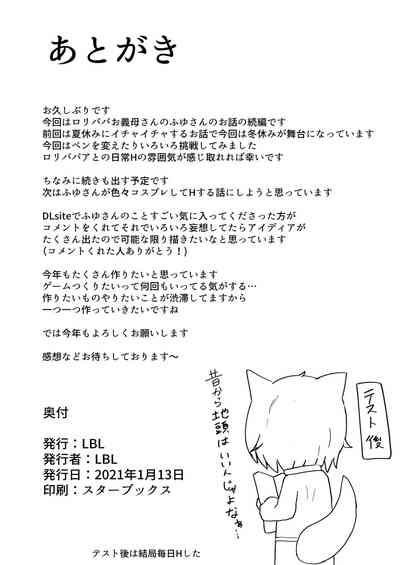 あとがき
お久しぶりです
今回はロリババお義母さんのふゆさんのお話の続編です
前回は夏休みにイチャイチャするお話で今回は冬休みが舞台になっています
今回はペンを変えたりいろいろ挑戦してみました
ロリババアとの日常Hの雰囲気が感じ取れれば幸いです
ちなみに続きも出す予定です
次はふゆさんが色々コスプレしてHする話にしようと思っています
DLsiteでふゆさんのことすごい気に入ってくださった方が
コメントをくれてそれでいろいろ妄想してたらアイディアが
たくさん出たので可能な限り描きたいなと思っています
(コメントくれた人ありがとう!)
今年もたくさん作りたいと思っています
ゲームつくりたいって何回もいってる気がする…
作りたいものやりたいことが渋滞してますから
一つ一つ作っていきたいですね
では今年もよろしくお願いします
感想などお待ちしております〜
テスト後
昔から地頭はいいんじゃよなぁ…
奥付
発行:LBL
発行者:LBL
発行日:2021年1月13日
印刷:スターブックス
テスト後は結局毎日Hした